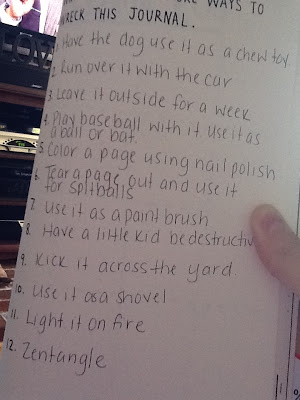 WAYS TO
WRECK THIS JOURNAL.
1. Have the dog use it as a chew toy.
2. Run over it with the car
3. Leave it outside for a week
4. Play baseball with it use it as
a ball or bat.
5. Color a page using nail polish
6. Tear a page out and use it
for spitballs
7. Use it as a paint brush
8. Have a little kid be destructiv
9. Kick it across the yard.
10. Use it as a shovel
11. Light it on fire
12. Zentangle